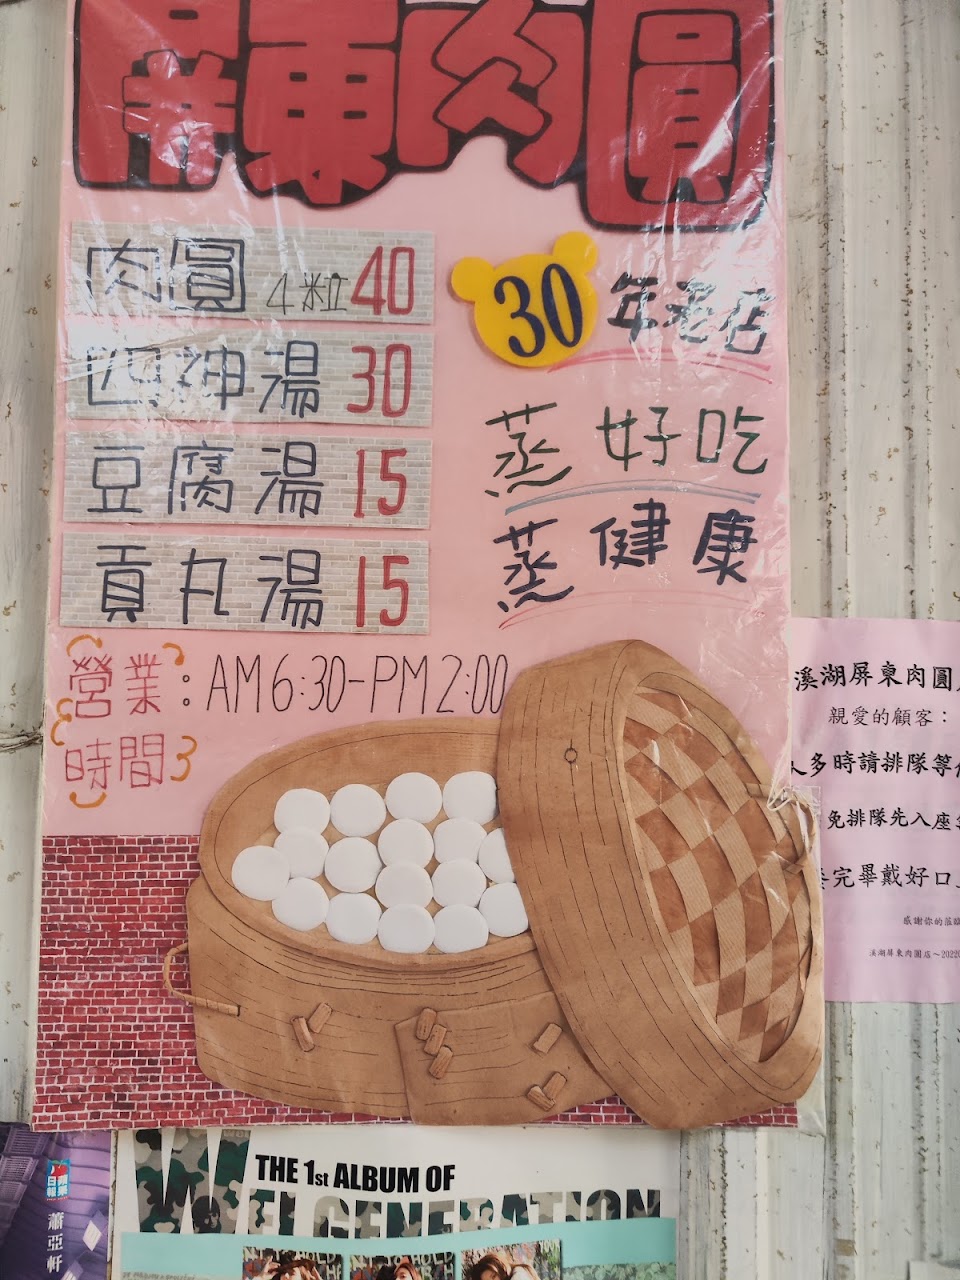 屏東肉圓
肉圓 4粒 40
四神湯 30
豆腐湯 15
貢丸湯 15
30 年老店
蒸 好吃
蒸 健康
營業：AM6:30-PM2:00
時間
溪湖屏東肉圓
親愛的顧客：
人多時請排隊等
免排隊先入座
完畢戴好口
感謝你的蒞臨
溪湖屏東肉圓店～2022
THE 1st ALBUM OF
WEI GENERATION
蘋果日報
蕭亞軒